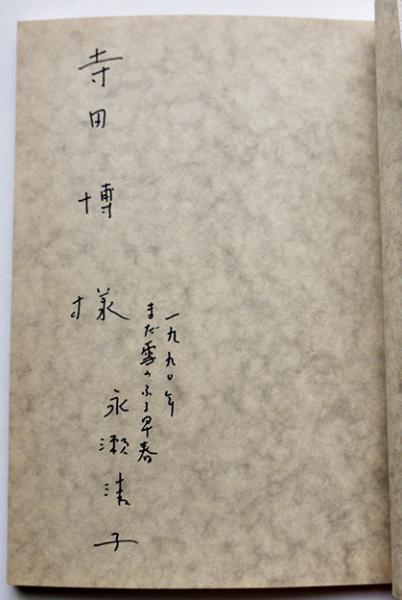 一九九〇年
まだ雪のふる早春
寺田博様
永瀬清子